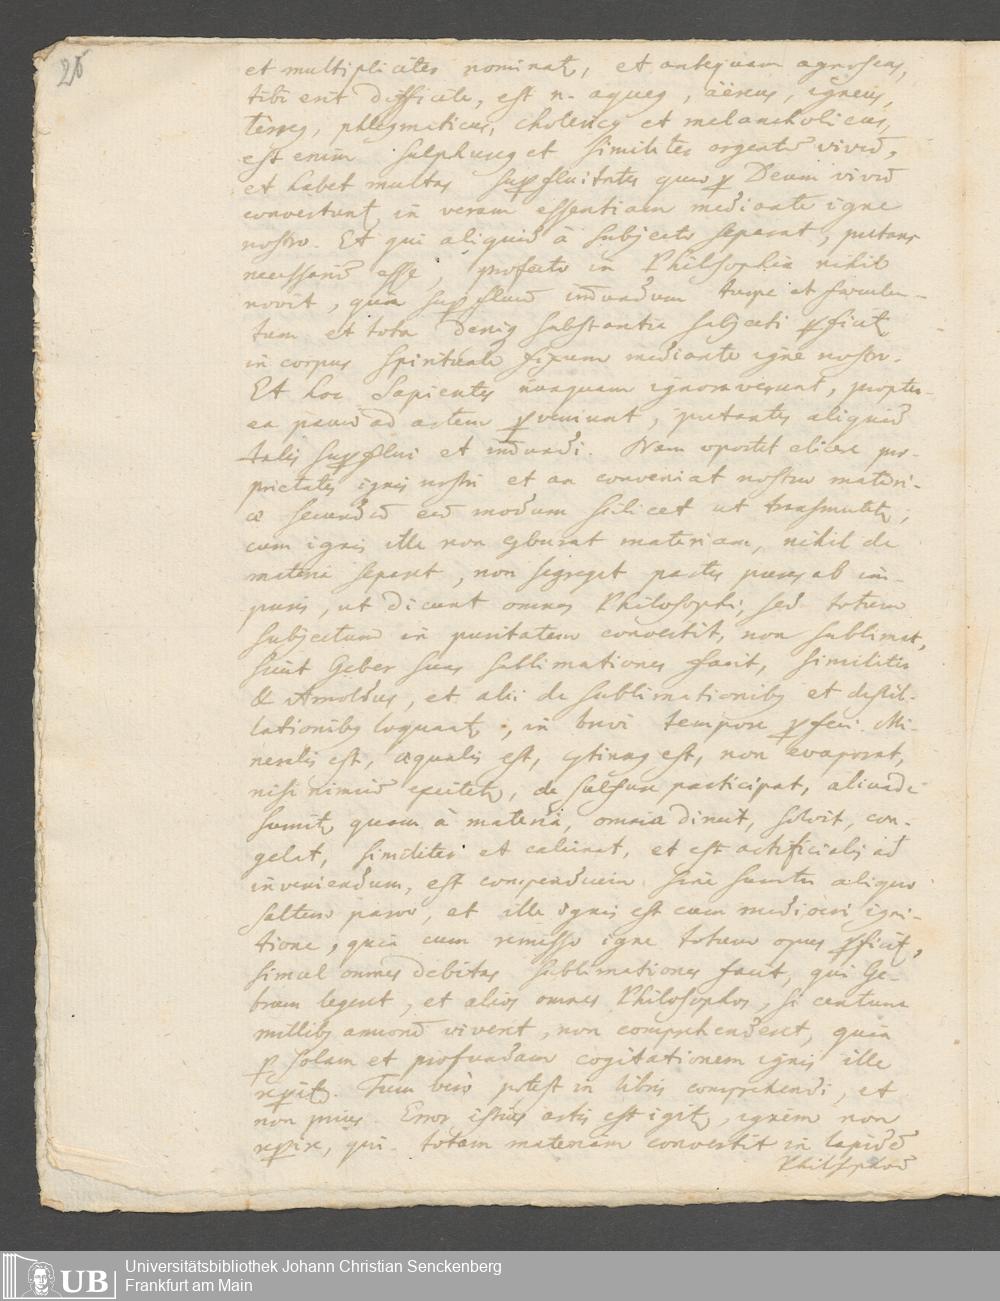 26
et multipliciter nominat, et antequam agnoscas,
tibi erit difficile, est n. aqueq, aëreus, igneus,
terreq, phlegmaticus, cholericq et melancholicus,
est enim sulphureq et similiter argentū vivū,
et habet multas supfluitates quae p Deum vivū
convertunt in veram essentiam mediante igne
nostro. Et qui aliquid à subjecto separat, putans
necessariū esse, profecto in Philosophia nihil
novit, quia supfluū im̄undum turpe et foeculen-
tum et tota deniq substantia subjecti pficit
in corpus spirituale fixum mediante igne nostro.
Et hoc Sapientes nunquam ignoraverunt, propter-
ea pauci ad artem pveniunt, putantes aliquid
talis supflui et im̄undi. Nam oportet elicere pro-
prietates ignis nostri et an conveniat nostrae materi-
ae secundū eū modum scilicet ut transmutet;
cum ignis ille non cōburat materiam, nihil de
materia separet, non segreget partes puras ab im-
puris, ut dicunt omnes Philosophi, sed totum
subjectum in puritatem convertit, non sublimat,
sicut Geber suas sublimationes facit, similiter
& Arnoldus, et alii de sublimationibq et destil-
lationibq loquunt, in brevi tempore pfici. Mi-
neralis est, aequalis est, cōtinuq est, non evaporat,
nisi nimiū excitet, de sulfure participat, aliunde
sumit quam à materia, omnia diruit, solvit, con-
gelat, similiter et calcinat, et est artificialis ad
inveniendum, est compendium sine sumtu aliquo
saltem parvo, et ille ignis est cum mediocri igni-
tione, quia cum remisso igne totum opus pficit,
simul omnes debitas sublimationes facit, qui Ge-
brum legent, et alios omnes Philosophos, si centum
millibq annorū viverent, non comprehenderent, quia
p solam et profundam cogitationem ignis ille
repit. Tum vero potest in libris comprehendi, et
non prius. Error istius artis est igit, ignem non
repire, qui totam materiam convertit in lapidē
Philosphorū
Universitätsbibliothek Johann Christian Senckenberg
Frankfurt am Main
UB